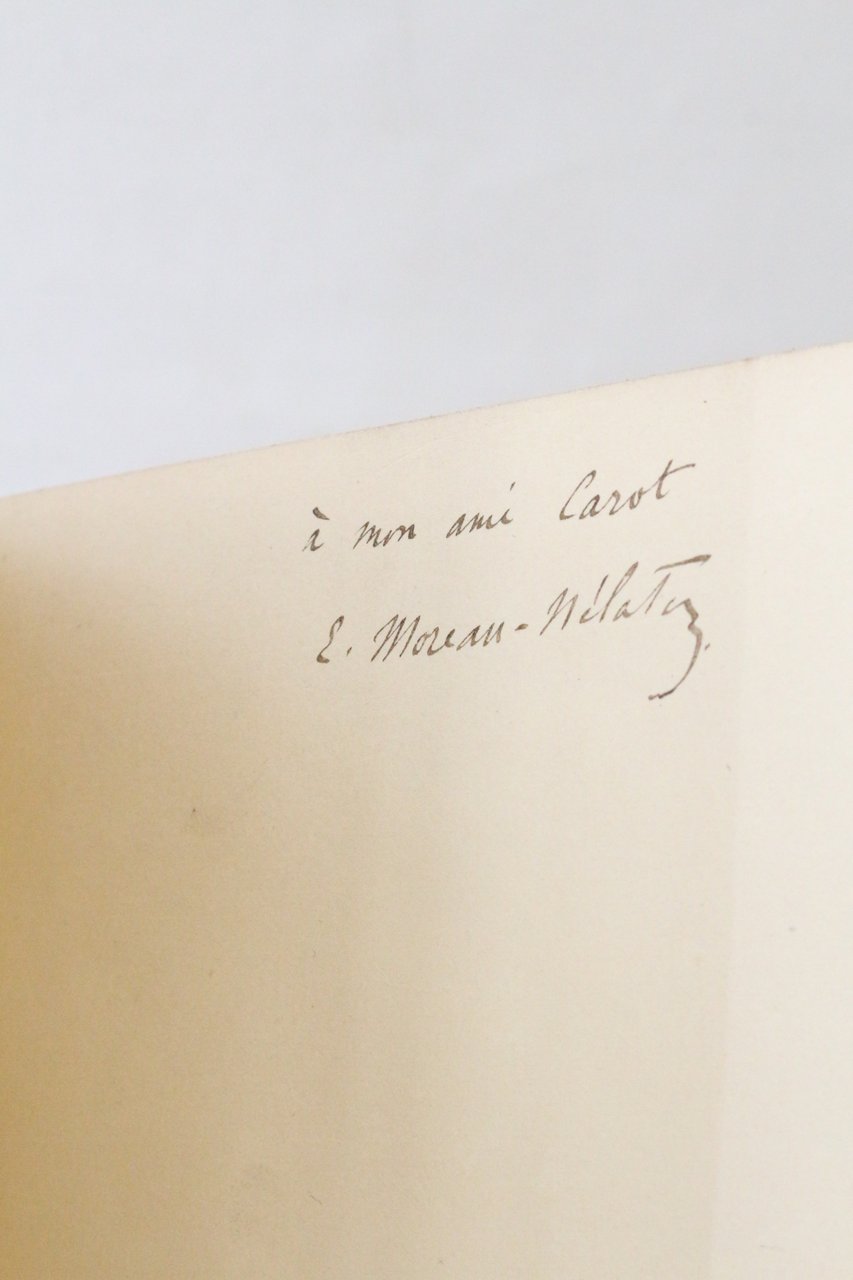 à mon ami Carot
E. Moreau-Nélaton.